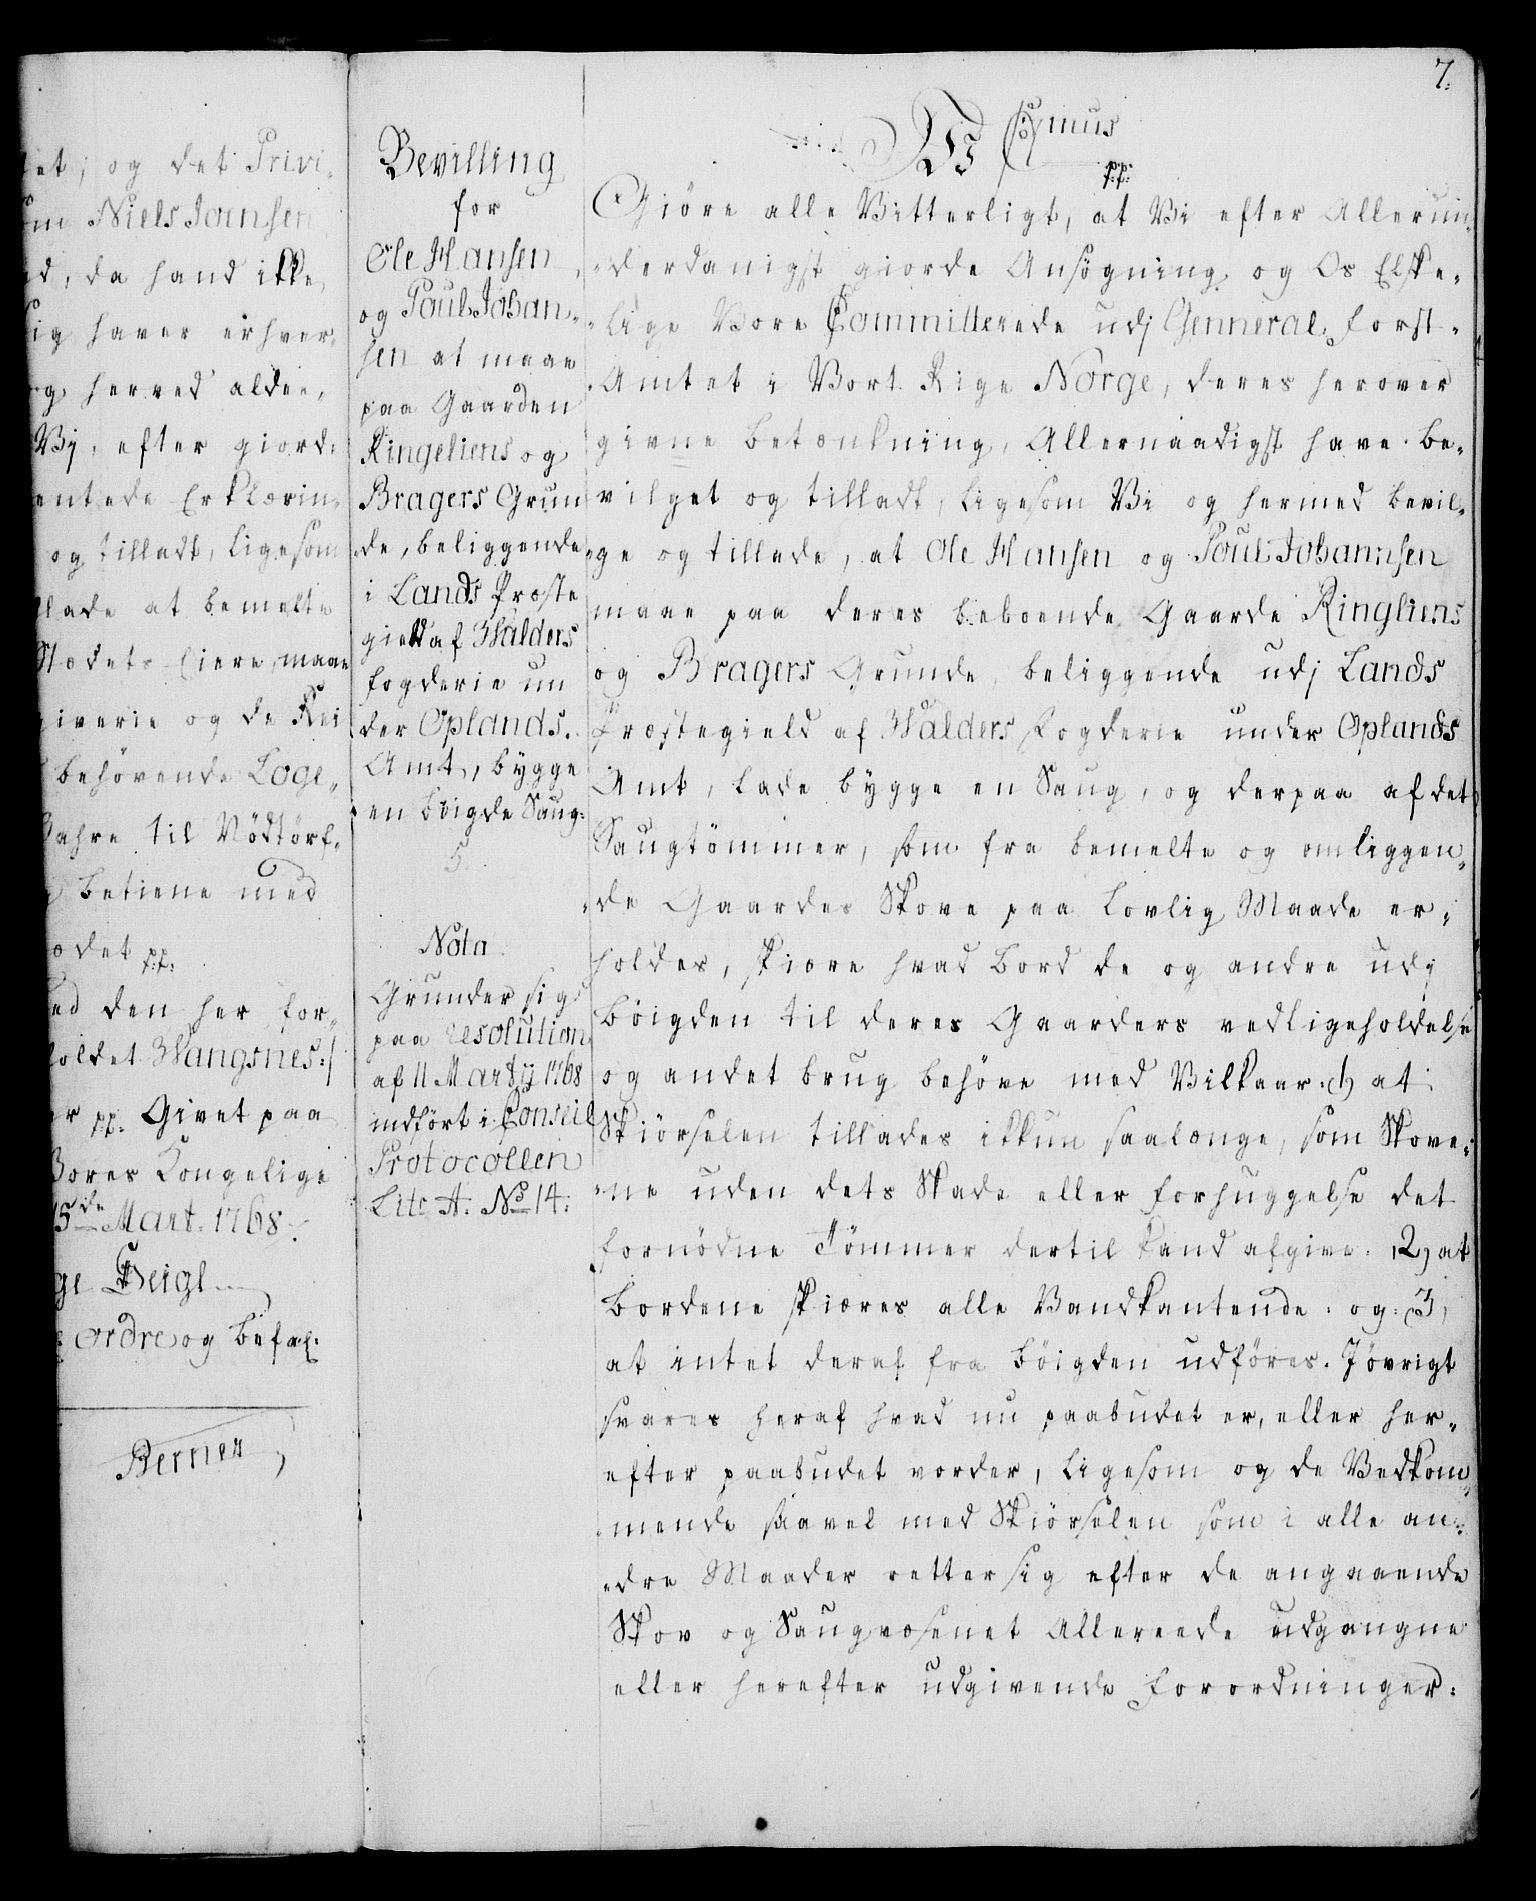 7.
tet, og det Privi-
Niels Jansen
da hand ikke
sig haver erhver-
og herved alde-,
Vij, efter giord-
entede Erklærin-
og tilladt, ligesom
lade at bemelte
Stedets Eiere, maae
giverie og de Rei
behövende Loge-
til Nödtörf-
betiene med
p.p.
ed den her for-
holdet Wangsnes:/
er pp. Givet paa
Vores Kongelige
15de Mart. 1768.
Seigl
ordre og befal:
Berner
Bevilling
for
Ole Hansen
og Poul Johan-
sen at maae
paa Gaarden
Ringeliens og
Bragers Grun
de, beliggende
i Lands Præste
gield af Walders
fogderie un
der Oplands.
Amt, bygge
en böigde Saug:
5.
Nota
Grunder sig
paa resolution
af 11 Martij 1768
indfört i Conseil
Protocollen
Litr A. No 14:
Wi Chr: 7mus
p.p:
Giöre alle Vitterligt, at Vi efter Allerun-
derdanigst giorde Ansögning og Os Elske-
lige Vore Committerede udj Genneral-forst-
Amtet i Vort Rige Norge, deres herover
givne betænkning, Allernaadigst have be-
vilget og tilladt, ligesom Vi og hermed bevil-
ge og tillade, at Ole Hansen og Poul Johannsen
maae paa deres beboende Gaarde Ringliens
og Bragers Grunde, beliggende udj Lands
Præstegield af Walders Fogderie under Oplands
Amt, lade bygge en Saug, og derpaa af det
Saugtömmer, som fra bemelte og omliggen-
de Gaardes Skove paa lovlig Maade er-
holdes, skiære hvad bord de og andre udj
böigden til deres Gaarders vedligeholdelse
og andet brug behöve med Vilkaar: 1, at
Skiörselen tillades ikkun saalænge, som Skove-
ne uden dets Skade eller forhuggelse det
fornödne Tömmer dertil kand afgive. 2, at
bordene skiæres alle Vandkantende. og 3,
at intet deraf fra böigden udföres. I övrigt
svares heraf hvad nu paabudet er, eller her-
efter paabudet vorder, ligesom og de Vedkom-
mende saavel med Skiörselen som i alle an-
dre Maader retter sig efter de angaaende
Skov og Saugvæsenet Allereede udgangne
eller herefter udgivende forordninger.